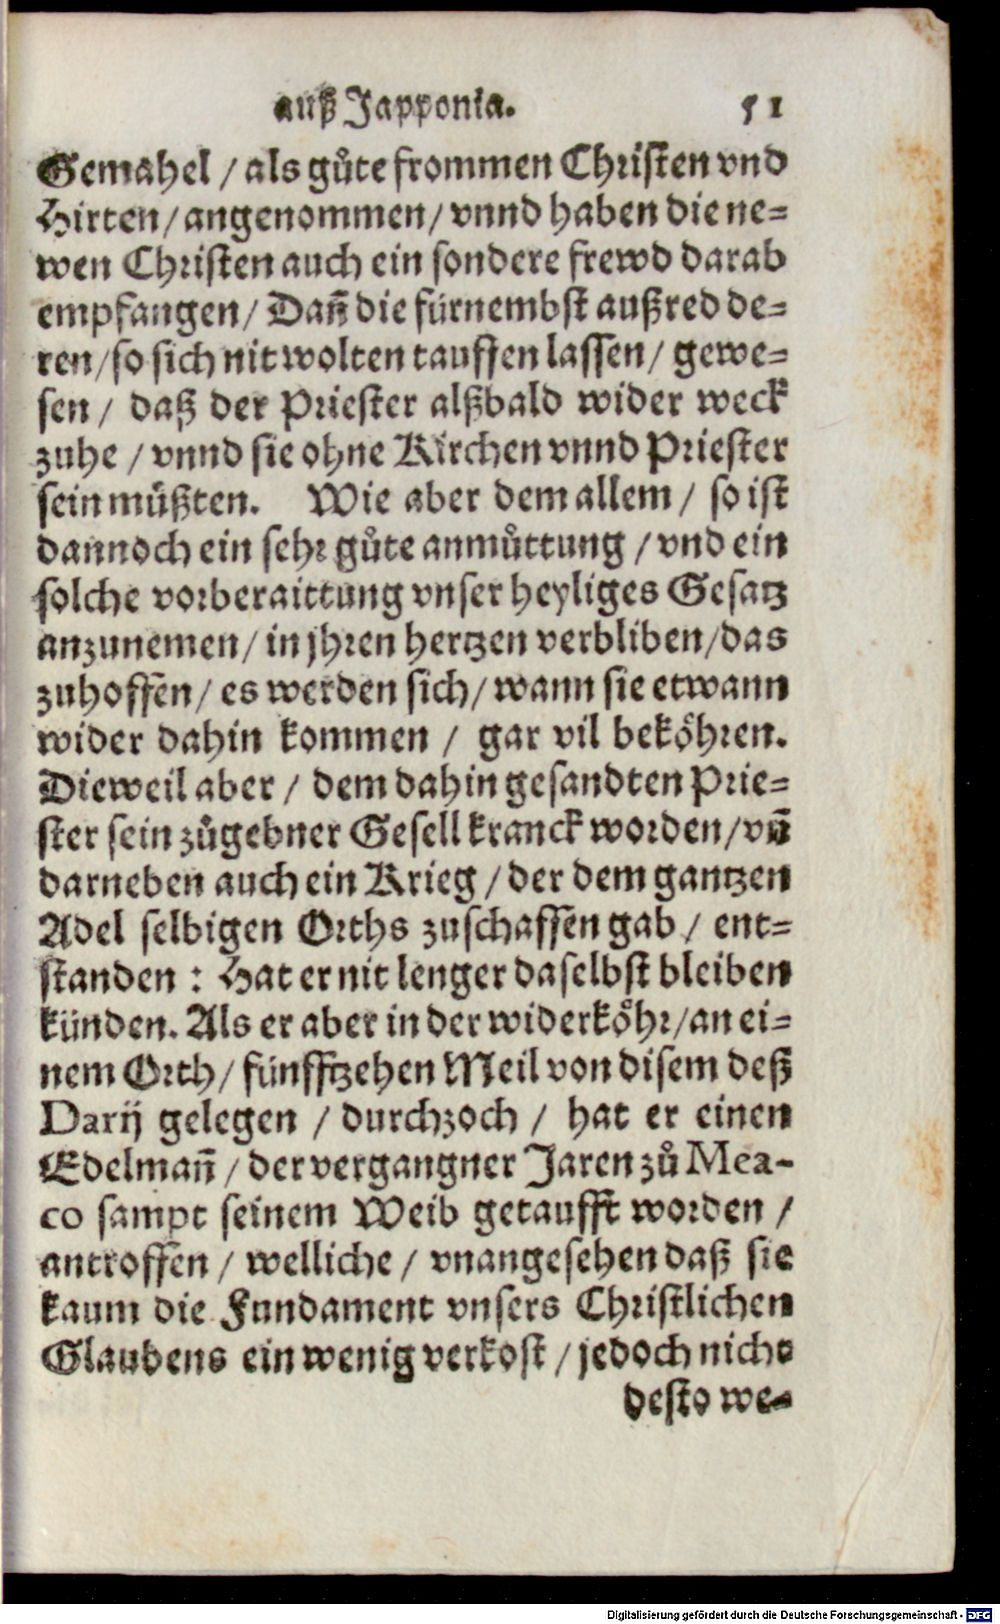 auß Japponia. 51
Gemahel / als gůte frommen Christen vnd
Hirten / angenommen / vnnd haben die ne=
wen Christen auch ein sondere frewd darab
empfangen / Dañ die fürnembst außred de=
ren / so sich nit wolten tauffen lassen / gewe=
sen / daß der Priester alßbald wider weck
zuhe / vnnd sie ohne Kirchen vnnd Priester
sein müßten. Wie aber dem allem / so ist
dannoch ein sehr gůte anmůttung / vnd ein
solche vorberaittung vnser heyliges Gesatz
anzunemen / in jhren hertzen verbliben / das
zuhoffen / es werden sich / wann sie etwann
wider dahin kommen / gar vil beköhren.
Dieweil aber / dem dahin gesandten Prie=
ster sein zůgebner Gesell kranck worden / vñ
darneben auch ein Krieg / der dem gantzen
Adel selbigen Orths zuschaffen gab / ent=
standen : Hat er nit lenger daselbst bleiben
künden. Als er aber in der widerköhr / an ei=
nem Orth / fünfftzehen Meil von disem deß
Darij gelegen / durchzoch / hat er einen
Edelmañ / der vergangner Jaren zů Mea-
co sampt seinem Weib getaufft worden /
antroffen / welliche / vnangesehen daß sie
kaum die Fundament vnsers Christlichen
Glaubens ein wenig verkost / jedoch nichs
desto we=
Digitalisierung gefördert durch die Deutsche Forschungsgemeinschaft - DFG